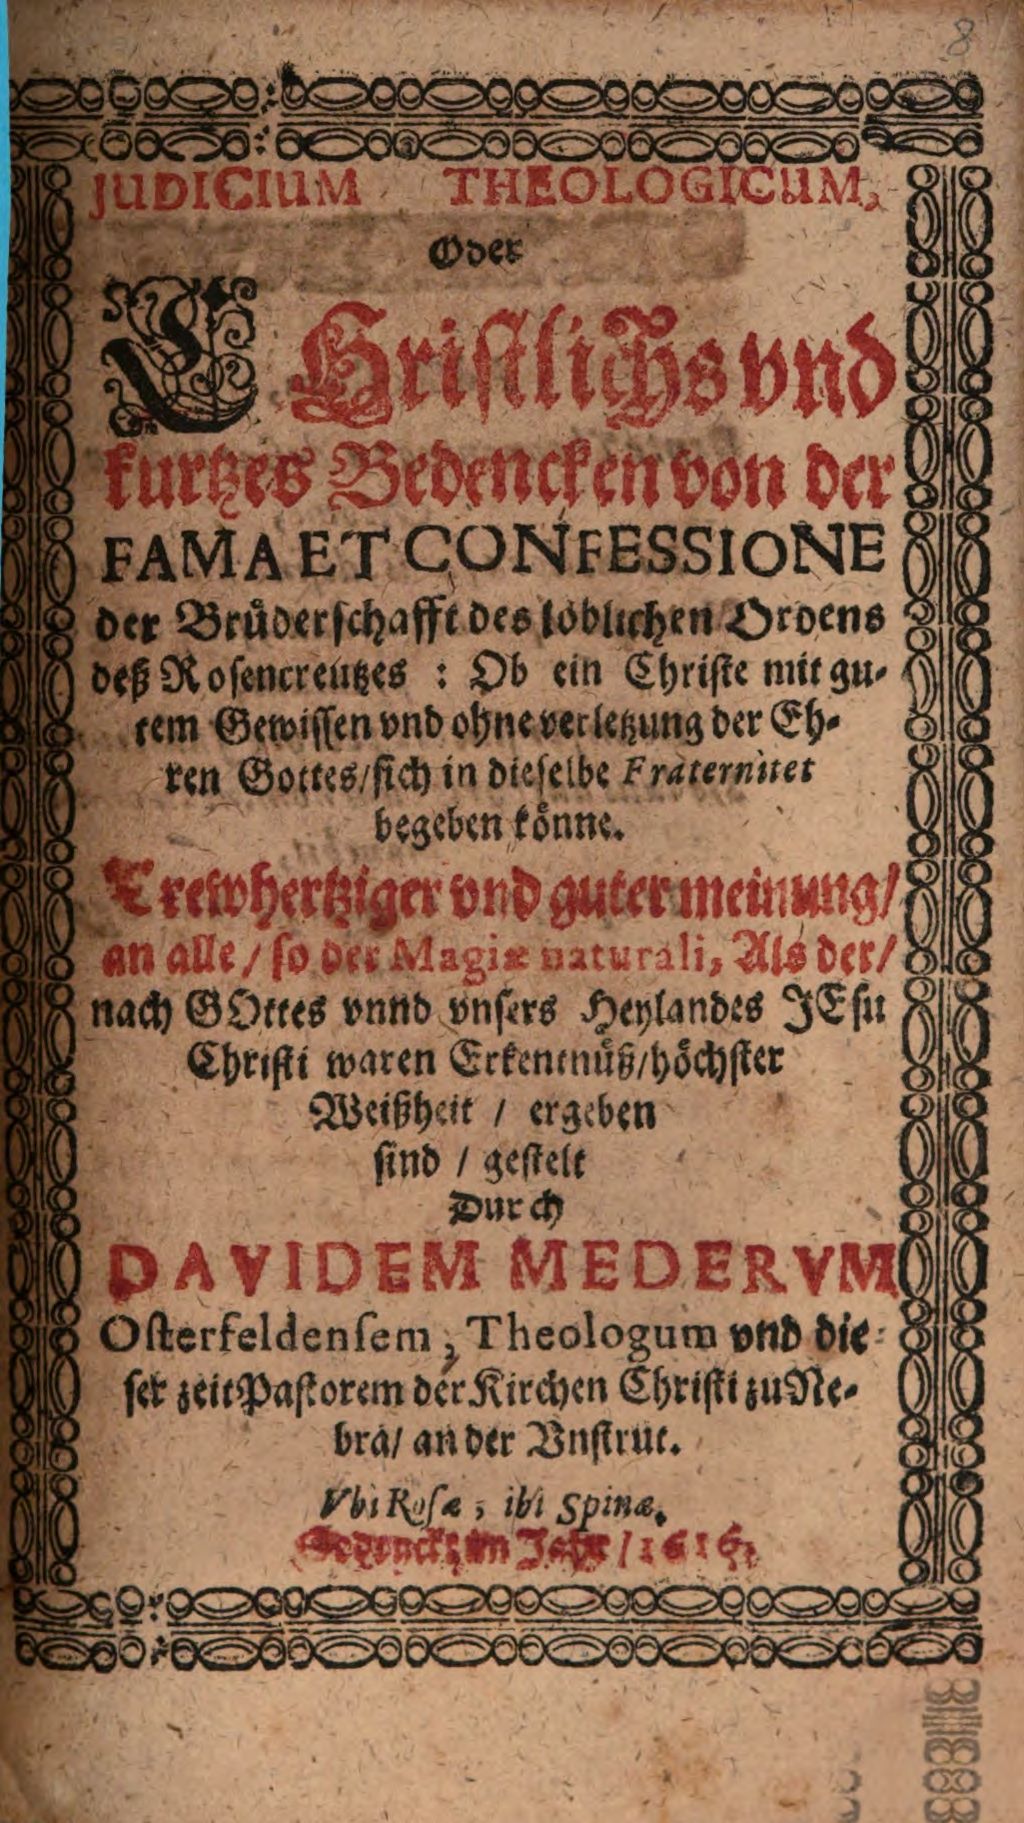 8
JUDICIUM THEOLOGICUM,
Oder
CHristlichs vnd
kurtzes Bedencken von der
FAMA ET CONFESSIONE
der Brůderschafft des löblichen Ordens
deß Rosencreutzes : Ob ein Christe mit gu-
tem Gewissen vnd ohne verletzung der Eh-
ren Gottes/sich in dieselbe Fraternitet
begeben könne.
Trewhertziger vnd guter meinung/
an alle / so der Magiæ naturali, Als der/
nach GOttes vnnd vnsers Heylandes JEsu
Christi waren Erkentnüß/höchster
Weißheit / ergeben
sind / gestelt
Durch
DAVIDEM MEDERVM
Osterfeldensem, Theologum vnd die-
ser zeit Pastorem der Kirchen Christi zu Ne-
bra/ an der Vnstrut.
Vbi Rosæ, ibi Spinæ.
Gedruckt im Jahr / 1616.